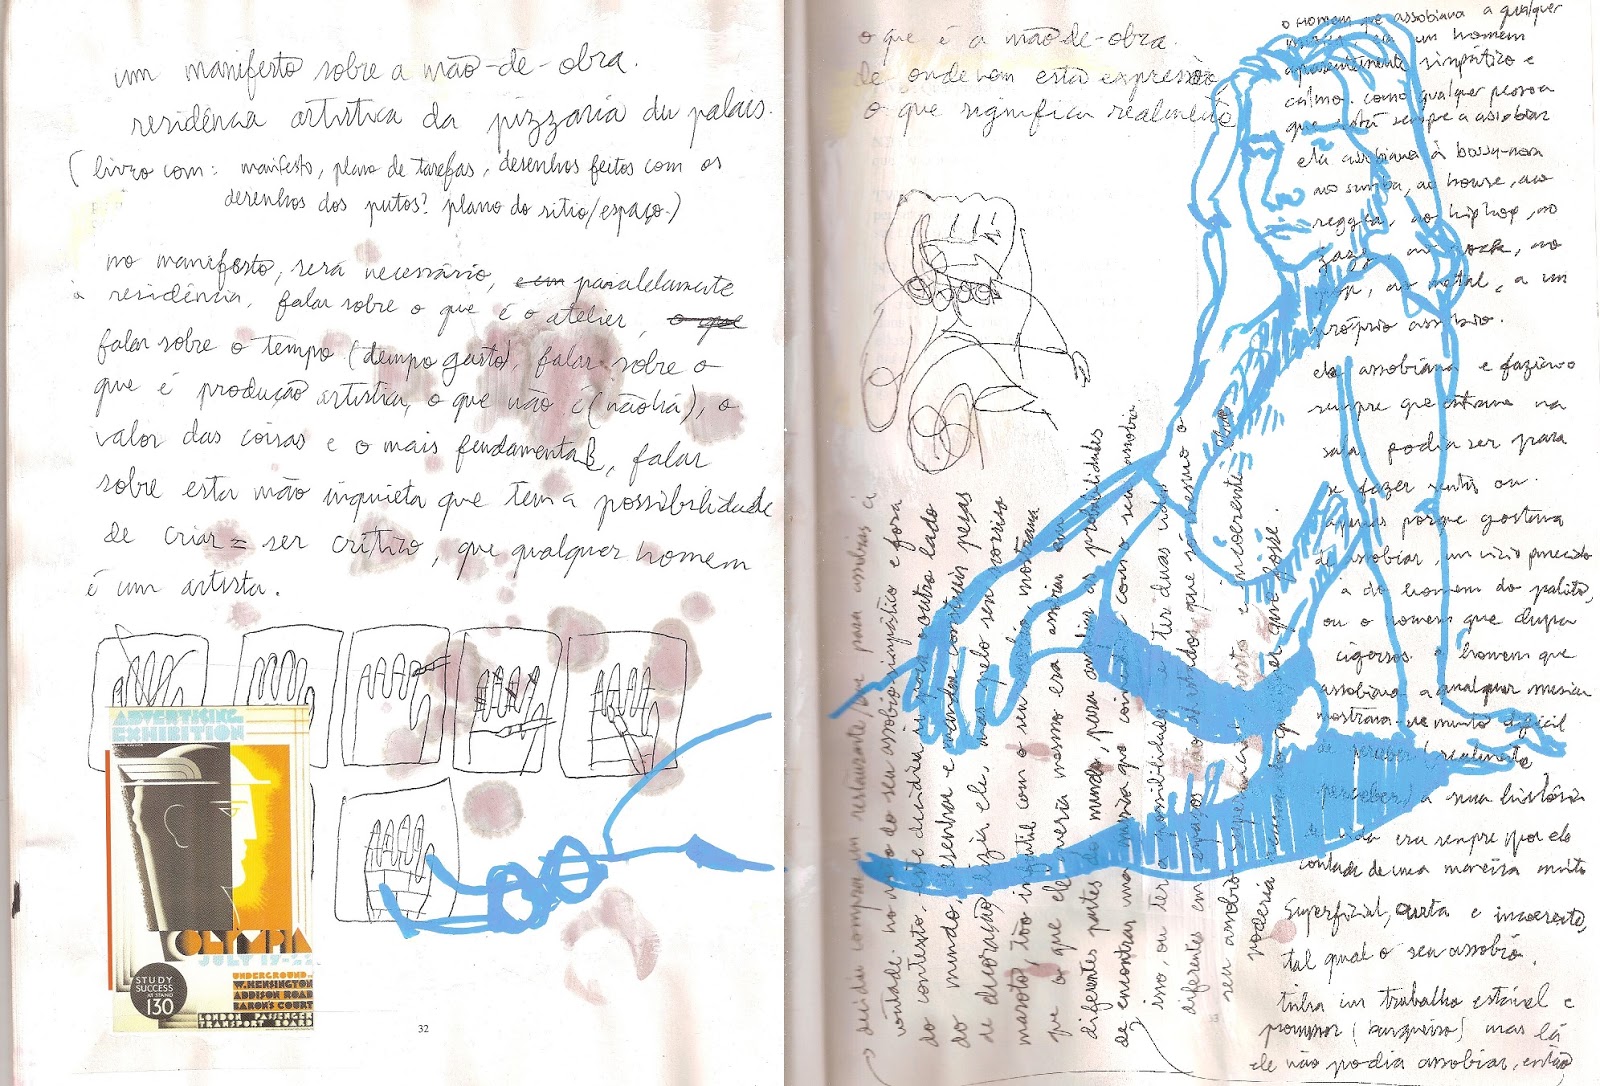 um manifesto sobre a mão-de-obra.
residência artistica da pizzaria du palais.
(livro com: manifesto, plano de tarefas, desenhos feitos com os
desenhos dos putos? plano do sitio/espaço.)
no manifesto, será necessário, paralelamente
à residência, falar sobre o que é o atelier, o que
falar sobre o tempo (tempo gasto), falar sobre o
que é produção artistica, o que não é (não há), o
valor das coisas e o mais fundamental, falar
sobre esta mão inquieta que tem a possibilidade
de criar = ser critico, que qualquer homem
é um artista.
ADVERTISING
EXHIBITION
OLYMPIA
JULY 17-22
STUDY
SUCCESS
AT STAND
130
UNDERGROUND
W. KENSINGTON
ADDISON ROAD
BARON'S COURT
LONDON PASSENGER
TRANSPORT BOARD
32
o que é a mão-de-obra.
de onde vem esta expressão
o que significa realmente
o homem que assobiava a qualquer
música, era um homem
aparentemente simpático e
calmo. como qualquer pessoa
que está sempre a assobiar
ele assobiava à bossa-nova
ao samba, ao house, ao
reggea, ao hip hop, ao
jazz, ao rock, ao
pop, ao metal, a um
próprio assobio.
ele assobiava e fazia-o
sempre que entrava na
sala, podia ser para
se fazer sentir ou
apenas porque gostava
de assobiar, um vicio parecido
a do homem do palito,
ou o homem que chupa
cigarros. o homem que
assobiava a qualquer musica
mostrava-se muito dificil
de perceber (realmente
perceber) a sua história
de vida era sempre por ele
contada de uma maneira muito
superficial, curta e incoerente,
tal qual o seu assobio.
tinha um trabalho estável e
promissor (banqueiro) mas lá
ele não podia assobiar, então
→ decidiu comprar um restaurante para assobiar à
vontade. no ritmo do seu assobio simpático e fora
do contexto, este decidiu ir para o outro lado
do mundo, desenhar e mandar construir peças
de decoração, dizia ele, mas pelo seu sorriso
maroto, tão infantil com o seu assobio, mostrava
que o que ele queria mesmo era assobiar em
diferentes partes do mundo, para avaliar as probabilidades
de encontrar uma música que coincidisse com o seu assobio.
isso, ou ter a possibilidade de ter duas vidas
diferentes em espaços tão afastados que só mesmo o
seu assobio, superficial, curto e incoerente
poderia